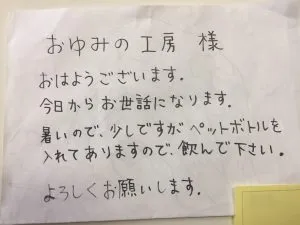 おゆみの工房 様
おはようございます。
今日からお世話になります。
暑いので、少しですがペットボトルを
入れてありますので、飲んで下さい。
よろしくお願いします。